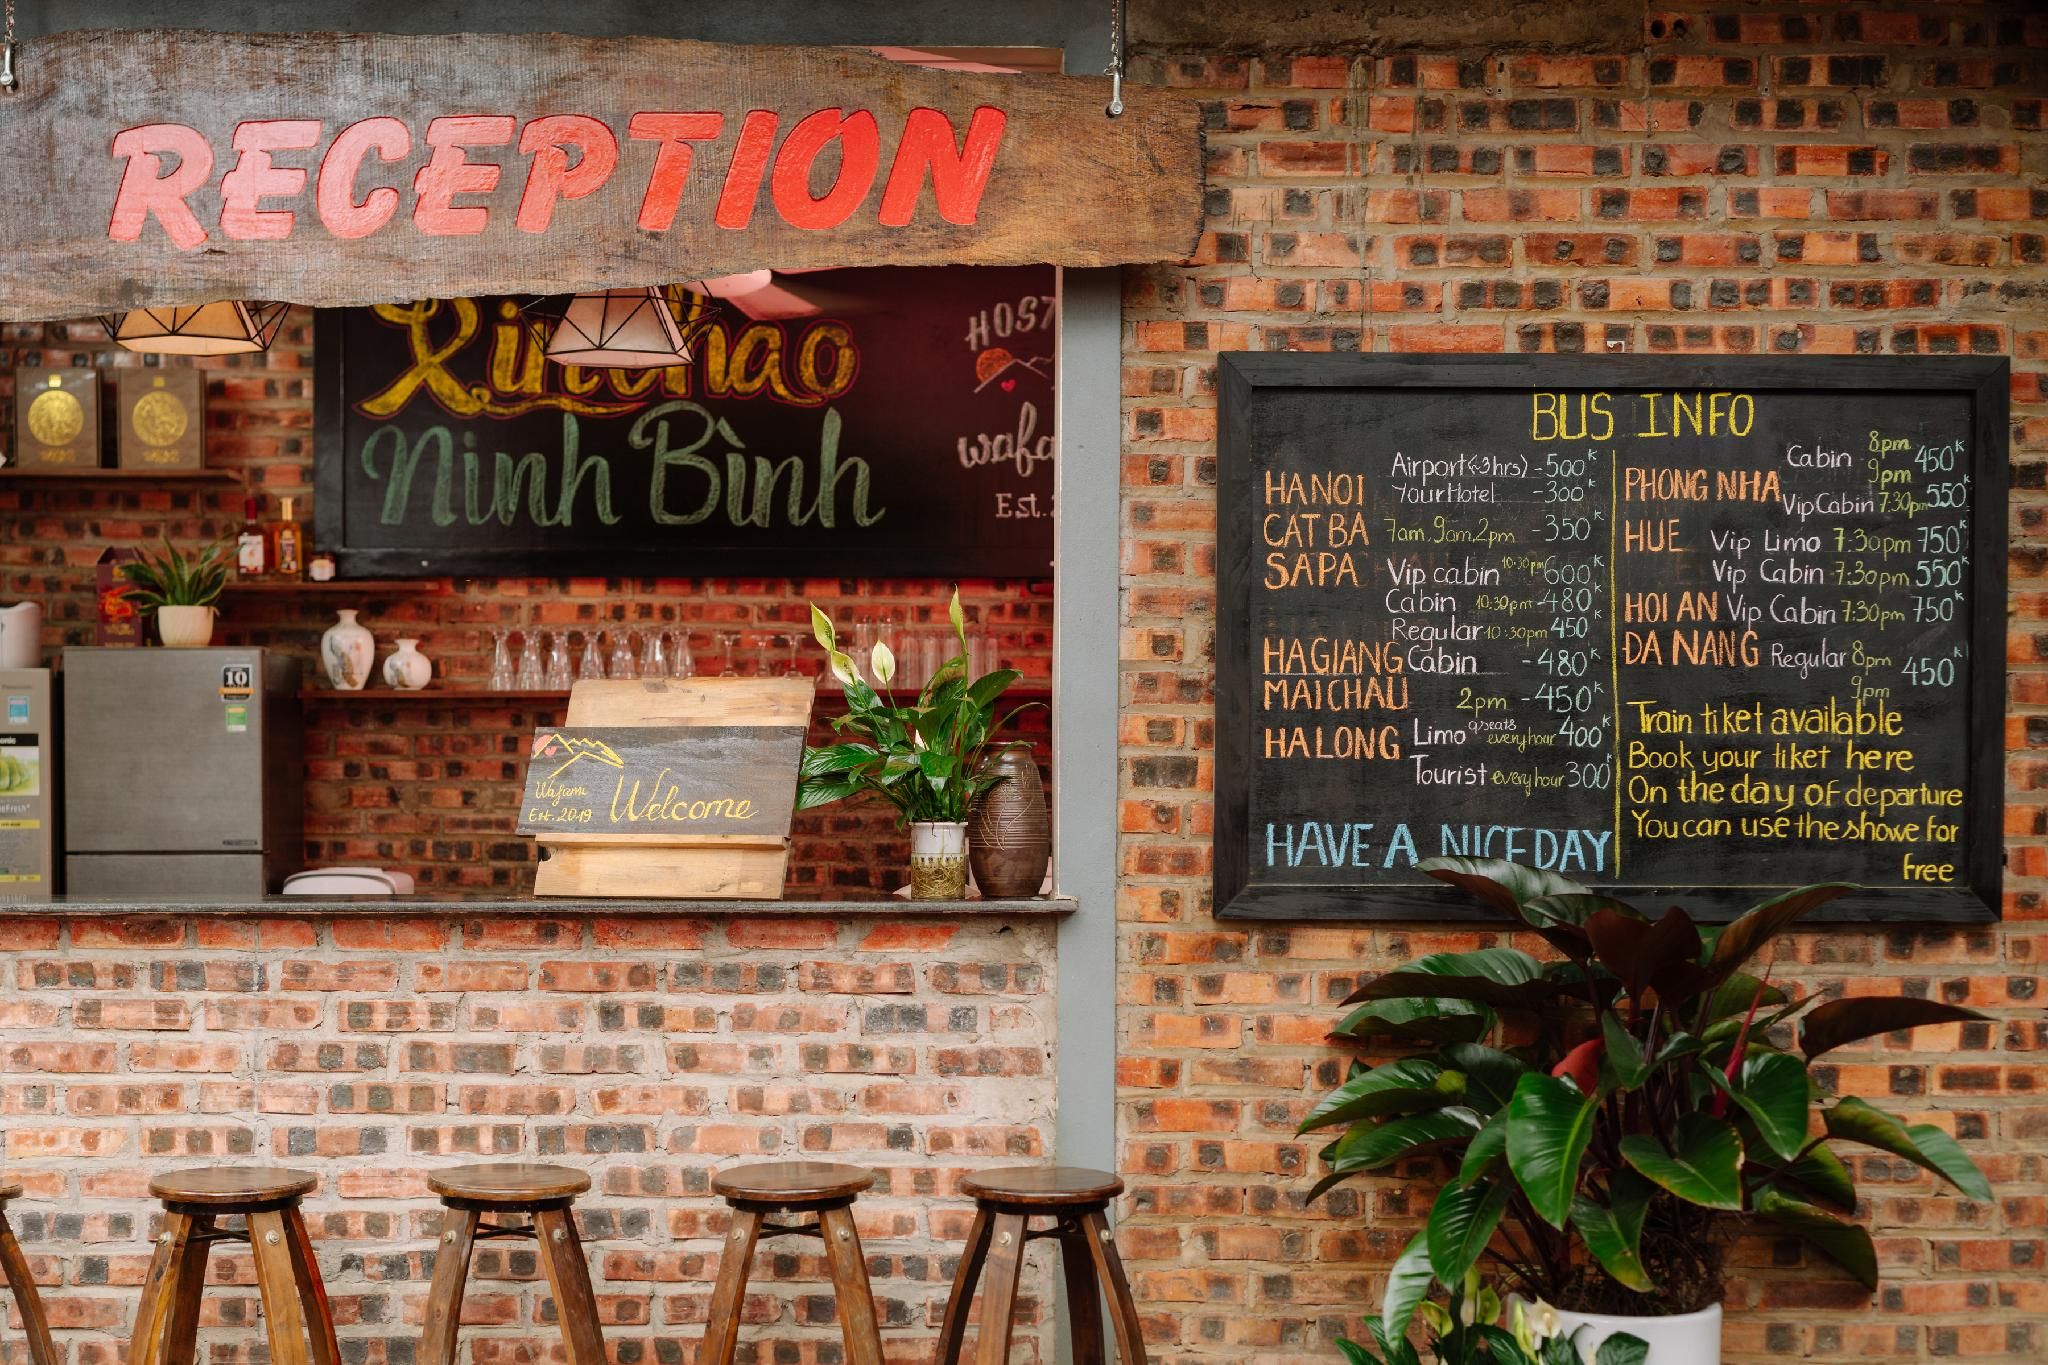 RECEPTION
Xin chao
Ninh Bình
HOST
wafa
Est.2
10
Wafami
Est. 2019
Welcome
BUS INFO
HANOI Airport(~3hrs) -500K
Your Hotel -300K
CAT BA 7am, 9am, 2pm -350K
SAPA Vip cabin 10:30pm -600K
Cabin 10:30pm -480K
Regular 10:30pm 450K
HAGIANG Cabin -480K
MAICHAU 2pm -450K
HALONG Limo 9seats every hour 400K
Tourist every hour 300K
HAVE A NICE DAY
PHONG NHA Cabin 8pm 9pm 450K
Vip Cabin 7:30pm 550K
HUE Vip Limo 7:30pm 750K
Vip Cabin 7:30pm 550K
HOI AN Vip Cabin 7:30pm 750K
DA NANG Regular 8pm 9pm 450K
Train tiket available
Book your tiket here
On the day of departure
You can use the showe for
free